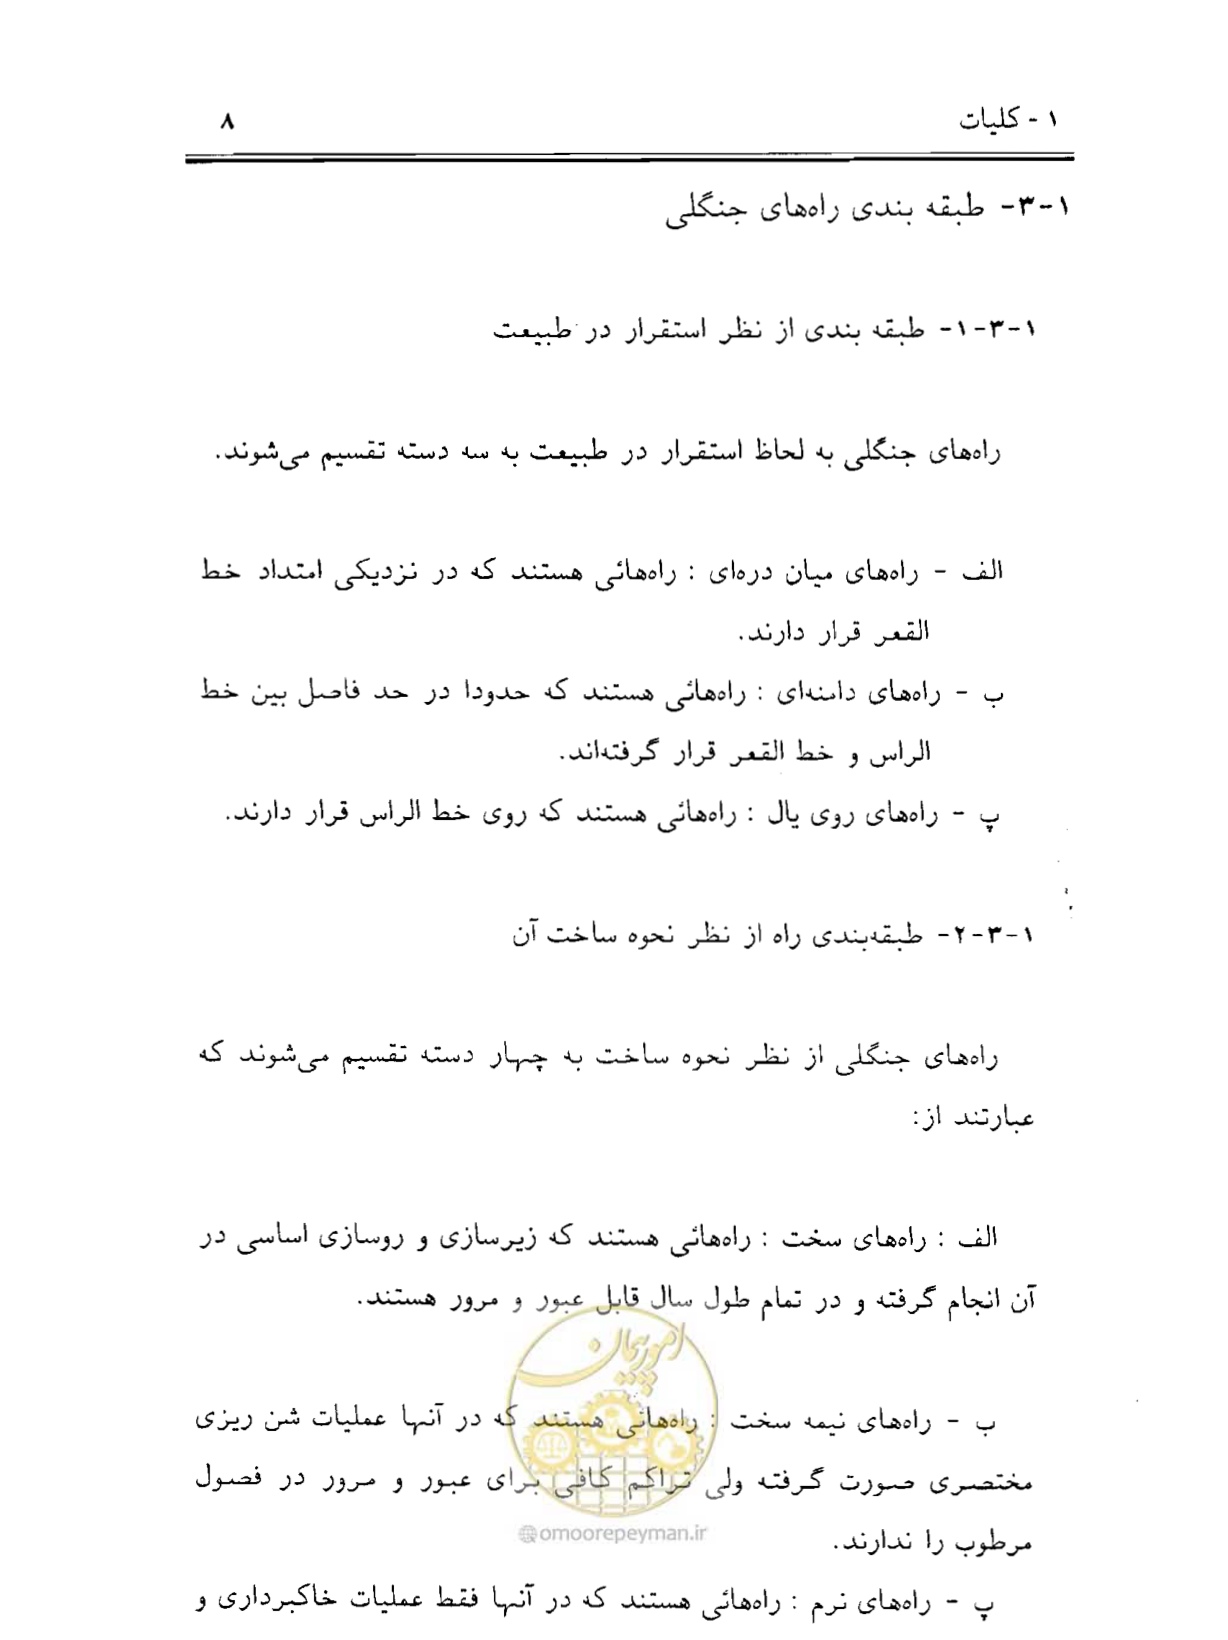 ۱ - کلیات ۸
۱-۳- طبقه بندی راه‌های جنگلی
۱-۳-۱- طبقه بندی از نظر استقرار در طبیعت
راه‌های جنگلی به لحاظ استقرار در طبیعت به سه دسته تقسیم می‌شوند.
الف - راه‌های میان دره‌ای : راه‌هائی هستند که در نزدیکی امتداد خط
القعر قرار دارند.
ب - راه‌های دامنه‌ای : راه‌هائی هستند که حدودا در حد فاصل بین خط
الراس و خط القعر قرار گرفته‌اند.
پ - راه‌های روی یال : راه‌هائی هستند که روی خط الراس قرار دارند.
۱-۳-۲- طبقه‌بندی راه از نظر نحوه ساخت آن
راه‌های جنگلی از نظر نحوه ساخت به چهار دسته تقسیم می‌شوند که
عبارتند از:
الف : راه‌های سخت : راه‌هائی هستند که زیرسازی و روسازی اساسی در
آن انجام گرفته و در تمام طول سال قابل عبور و مرور هستند.
امور پیمان
ب - راه‌های نیمه سخت : راه‌هائی هستند که در آنها عملیات شن ریزی
مختصری صورت گرفته ولی تراکم کافی برای عبور و مرور در فصول
@omoorepeyman.ir
مرطوب را ندارند.
پ - راه‌های نرم : راه‌هائی هستند که در آنها فقط عملیات خاکبرداری و